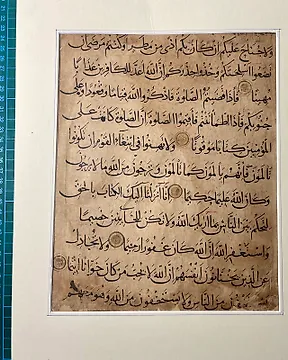 ولا جناح عليكم ان كان بكم اذى من مطر او كنتم مرضى ان
تضعوا اسلحتكم وخذوا حذركم ان الله اعد للكافرين عذابا
مهينا فاذا قضيتم الصلوة فاذكروا الله قياما وقعودا وعلى
جنوبكم فاذا اطماننتم فاقيموا الصلوة ان الصلوة كانت على
المؤمنين كتابا موقوتا ولا تهنوا في ابتغاء القوم ان تكونوا
تالمون فانهم يالمون كما تالمون وترجون من الله ما لا يرجون
وكان الله عليما حكيما انا انزلنا اليك الكتاب بالحق
لتحكم بين الناس بما اريك الله ولا تكن للخائنين خصيما
واستغفر الله ان الله كان غفورا رحيما ولا تجادل
عن الذين يختانون انفسهم ان الله لا يحب من كان خوانا اثيما
يستخفون من الناس ولا يستخفون من الله وهو معهم